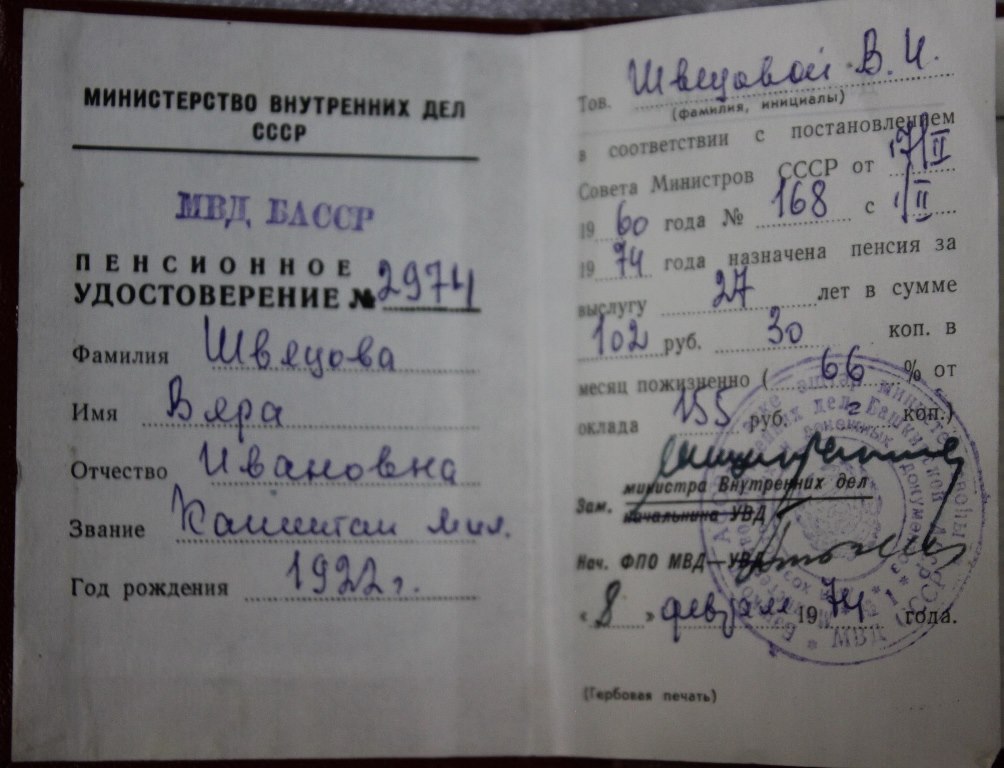 МИНИСТЕРСТВО ВНУТРЕННИХ ДЕЛ
СССР
МВД БАССР
ПЕНСИОННОЕ
УДОСТОВЕРЕНИЕ № 2974
Фамилия Швецова
Имя Вера
Отчество Ивановна
Звание Капитан мил.
Год рождения 1922 г.
Тов. Швецовой В. И.
(фамилия, инициалы)
в соответствии с постановлением
Совета Министров СССР от 17/II
1960 года № 168 с 1/II
1974 года назначена пенсия за
выслугу 27 лет в сумме
102 руб. 30 коп. в
месяц пожизненно (66 % от
оклада 155 руб. коп.)
министра Внутренних дел
Зам. начальника УВД
Нач. ФПО МВД—УВД
«8» февраля 1974 года.
(Гербовая печать)